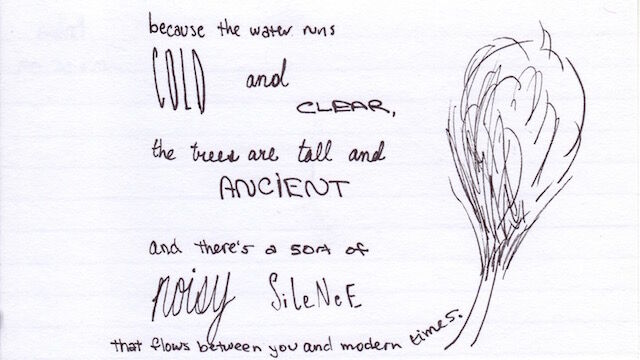 because the water runs
COLD and
CLEAR,
the trees are tall and
ANCIENT
and there's a sort of
noisy SiLeNcE
that flows between you and modern times.